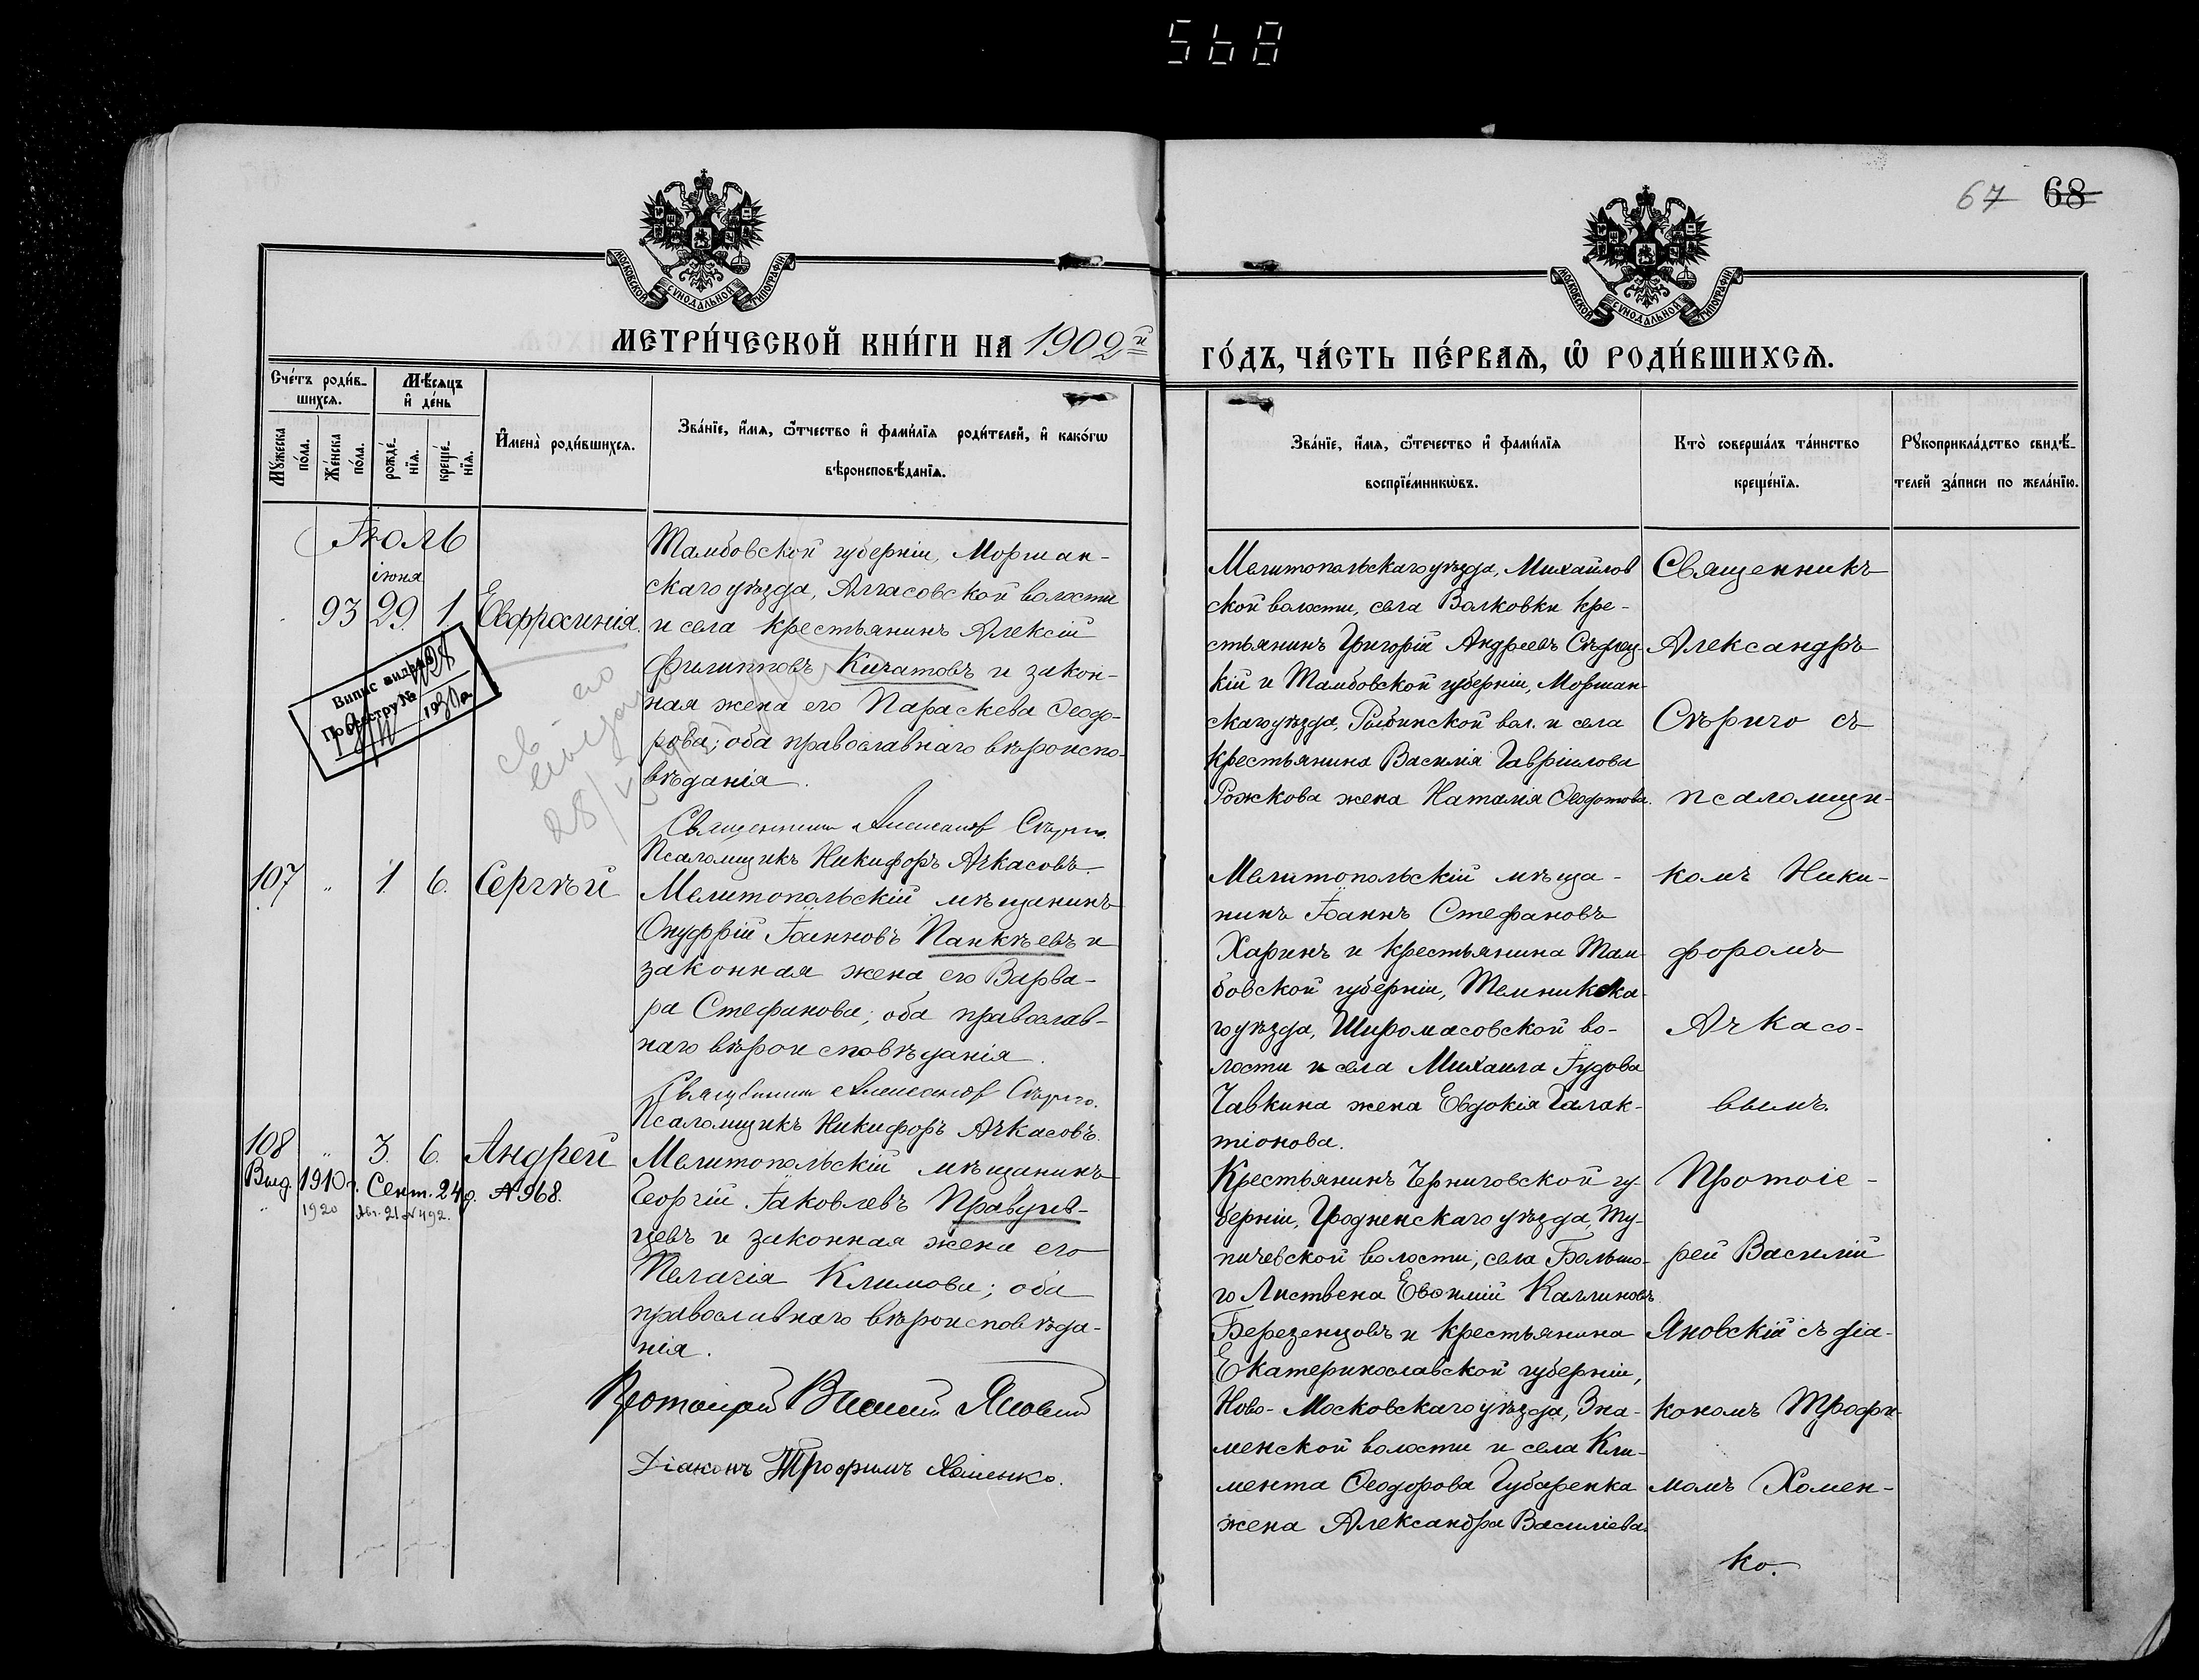 568
67 68
МОСКОВСКОЙ СУНОДАЛЬНОЙ ТИПОГРАФІИ
МОСКОВСКОЙ СУНОДАЛЬНОЙ ТИПОГРАФІИ
МЕТРИ́ЧЕСКОЙ КНИ́ГИ НА 1902й
ГО́ДЪ, ЧА́СТЬ ПЕ́РВАЯ, Ѡ РОДИ́ВШИХСЯ.
Сче́тъ роди́в-
шихся.
Му́жеска по́ла.
Же́нска по́ла.
Мѣ́сяцъ и де́нь
рожде́нія.
креще́нія.
Имена̀ роди́вшихся.
Зва́ніе, и́мя, ѻ҆́тчество и фами́лія роди́телей, и како́гѡ
вѣроисповѣ́данія.
Зва́ніе, и́мя, ѻ҆́течество и фами́лія
воспріе́мникѡвъ.
Кто̀ соверша́лъ та́инство
креще́нія.
Рꙋкоприкла́дство свидѣ́-
телей за́писи по жела́нію.
Іюль
іюня
93 29. 1. Евфросинія.
Тамбовской губерніи, Моршан-
скаго уѣзда, Алгасовской волости
и села крестьянинъ Алексій
Филипповъ Кичатовъ и закон-
ная жена его Параскева Ѳеодо-
рова; оба православнаго вѣроиспо-
вѣданія.
Священникъ Александр Сѣриго.
Псаломщикъ Никифоръ Ачкасовъ.
Випис видано
По реестру №
28/V
Мелитопольскаго уѣзда, Михайлов
ской волости, села Волковки кре-
стьянинъ Григорій Андреевъ
кій и Тамбовской губерніи, Моршан-
скаго уѣзда, Рыбинской вол. и села
крестьянина Василія Гавріилова
Рожкова жена Наталія Ѳеодотова.
Священникъ
Александръ
Сѣриго съ
псаломщи-
комъ Ники-
форомъ
Ачкасо-
вымъ.
107 " 1. 6. Сергѣй
Мелитопольскій мѣщанинъ
Онуфрій Іоанновъ Панкѣевъ и
законная жена его Варва-
ра Стефанова; оба православ-
наго вѣроисповѣданія.
Священникъ Александр Сѣриго.
Псаломщикъ Никифоръ Ачкасовъ.
Мелитопольскій мѣща-
нинъ Іоаннъ Стефановъ
Харинъ и крестьянина Там-
бовской губерніи, Темникска-
го уѣзда, Широмасовской во-
лости и села Михаила Іудова
Чавкина жена Евдокія Галак-
тіонова.
108 " 3. 6. Андрей
Выд. 1910г. Сент. 24д. № 968.
1920 Авг. 21 № 492.
Мелитопольскій мѣщанинъ
Георгій Іаковлевъ Правуив-
цевъ и законная жена его
Пелагія Климова; оба
православнаго вѣроисповѣда-
нія.
Протоіерей Василій Яновскій
Діаконъ Трофимъ Хоменко.
Крестьянинъ Черниговской гу-
берніи, Городненскаго уѣзда, Ту-
пичевской волости, села Большо-
го Листвена Евѳимій Каллиновъ
Березенцовъ и крестьянина
Екатеринославской губерніи,
Ново-Московскаго уѣзда, Зна-
менской волости и села Кли-
мента Ѳеодорова Губаренка
жена Александра Василіева.
Протоіе-
рей Василій
Яновскій съ діа-
кономъ Трофи-
момъ Хомен-
ко.